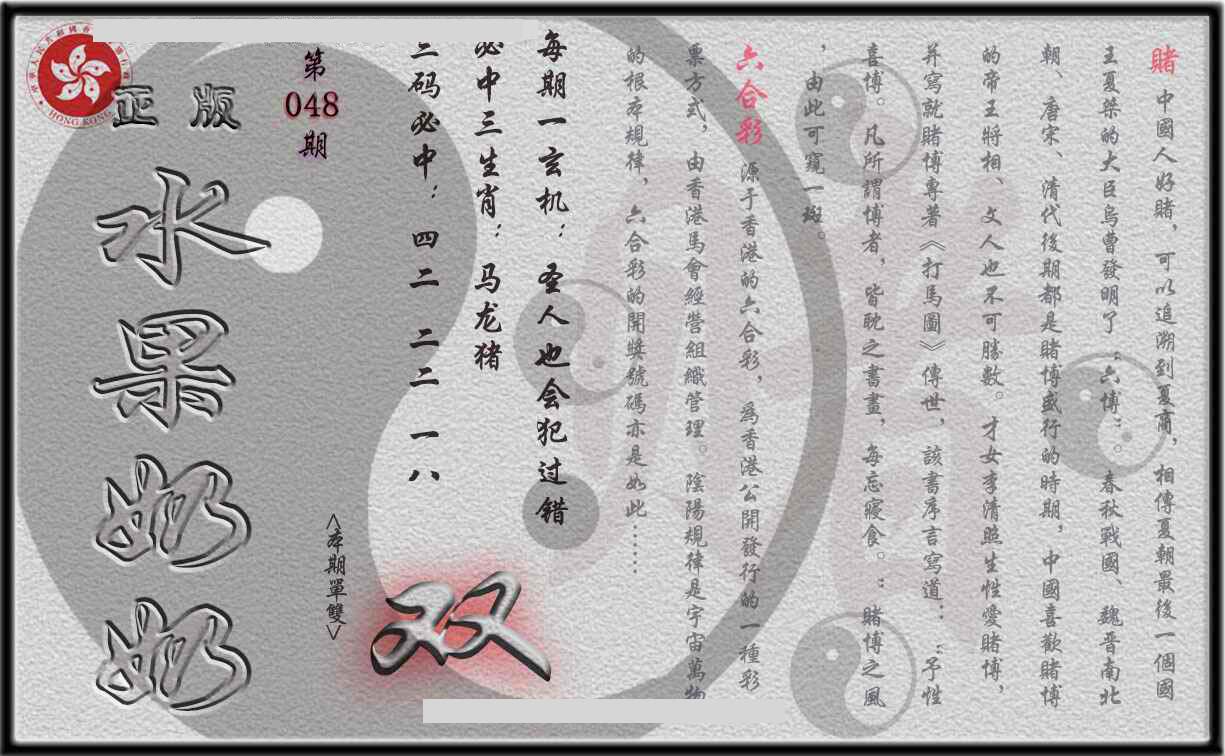 賭 中國人好賭，可以追溯到夏商，相傳夏朝最後一個國
王夏桀的大臣烏曹發明了“六博”。春秋戰國、魏晋南北
朝、唐宋、清代後期都是賭博盛行的時期，中國喜歡賭博
的帝王將相、文人也不可勝數。才女李清照生性愛賭博，
并寫就賭博專著《打馬圖》傳世，該書序言寫道：“予性
喜博。凡所謂博者，皆耽之晝，每忘寢食。”賭博之風
，由此可窺一斑。
六合彩 源于香港的六合彩，為香港公開發行的一種彩
票方式，由香港馬會經營組織管理。陰陽規律是宇宙萬物
的根本規律，六合彩的開獎號碼亦是如此……
每期一玄机：圣人也会犯过错
必中三生肖：马龙猪
三码必中：四二 二二 一八
第
048
期
<本期單雙>
双
正版
水果奶奶
HONG KONG